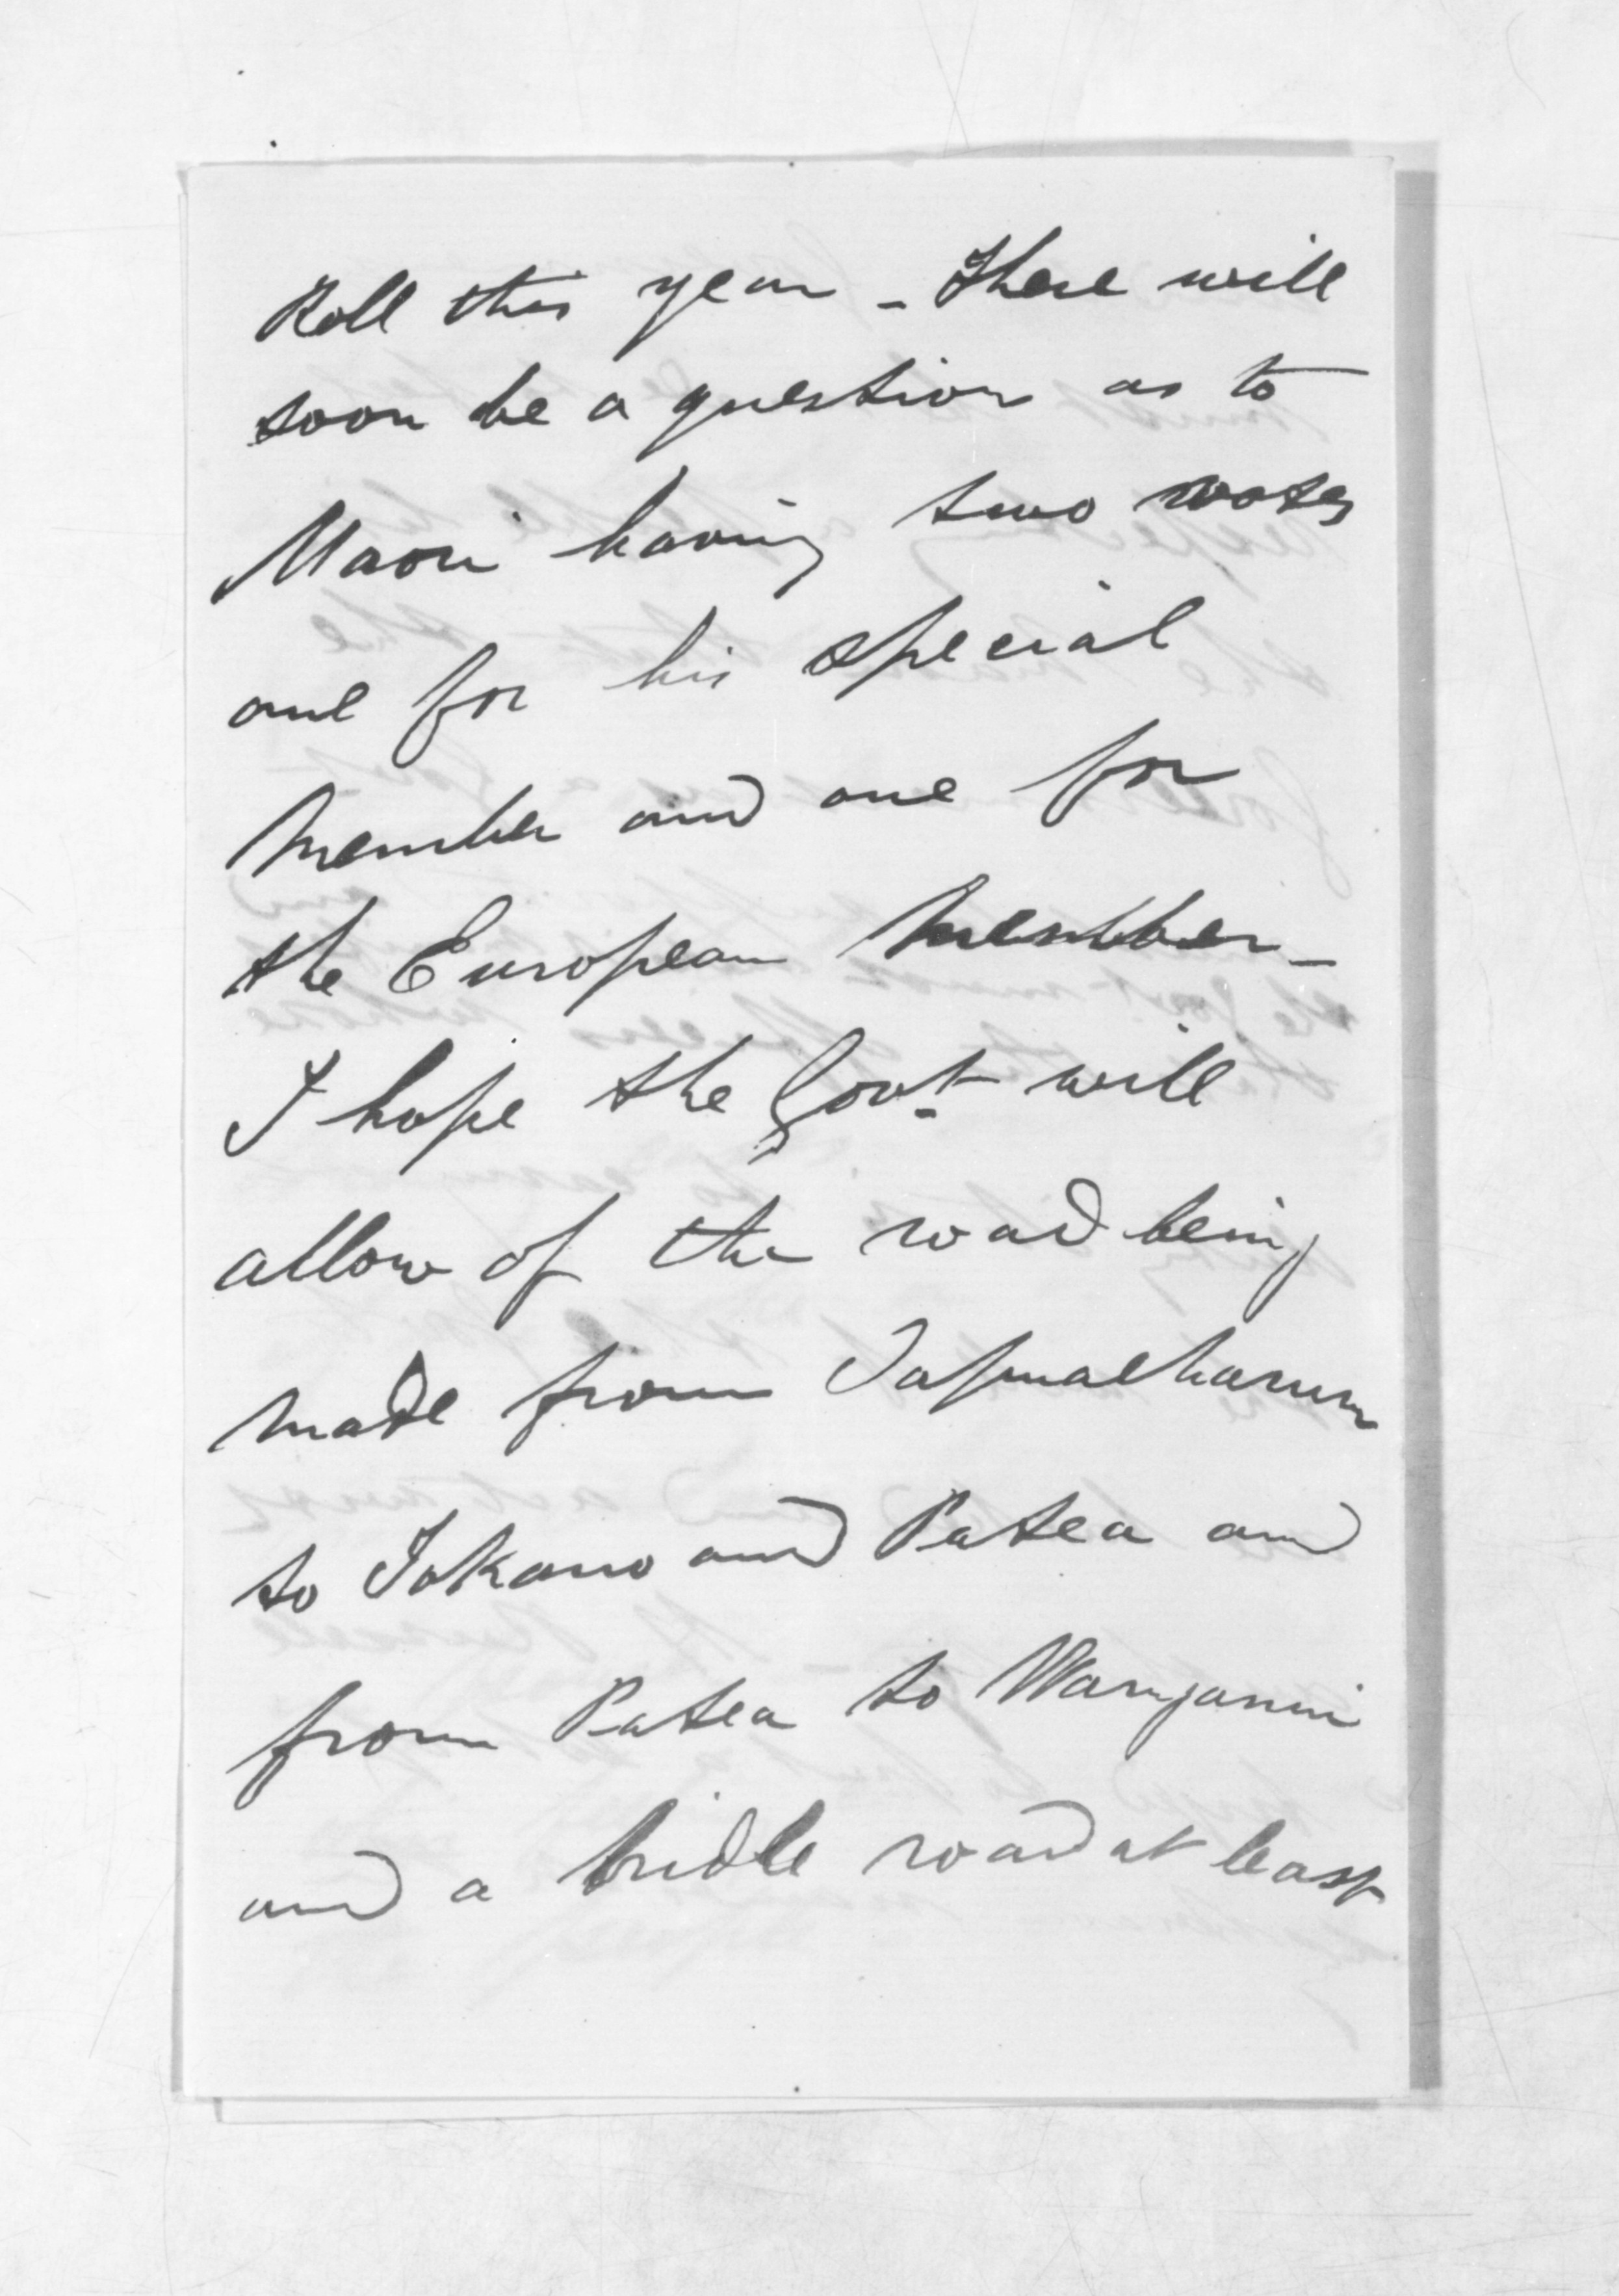 Roll this year – There will
soon be a question as to
Maori having two votes
one for his special
member and one for
the European Member –
I hope the Govt. will
allow of the road being
made from Tapuaeharuru
to Tokano and Patea and
from Patea to Wanganui
and a bridle road at least